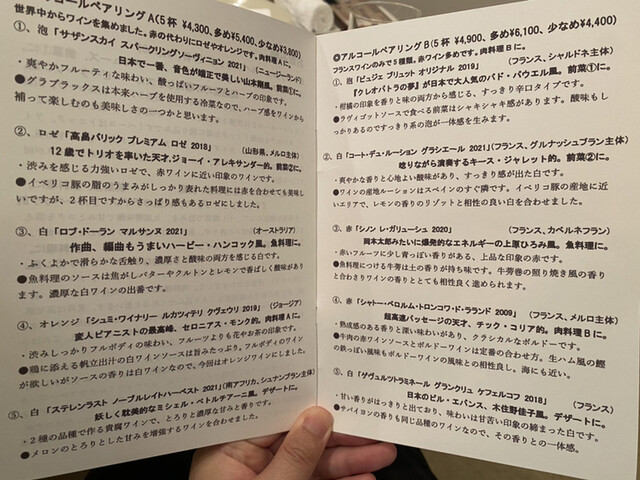 コールペアリングA(5杯 ¥4,300、多め¥5,400、少なめ¥3,800)
世界からワインを集めました。赤の代わりにロゼやオレンジです。肉料理Aに。
①、泡「サザンスカイ スパークリングソーヴィニョン 2021」 (ニュージーランド)
日本で一番、音色が端正で美しい山本剛風。前菜①に。
・爽やかフルーティな味わい、酸っぱいフルーツとハーブの印象です。
●グラブラックスは本来ハーブを使用する冷菜なので、ハーブ感をワインから
補って楽しむのも美味しさの一つかと思います。
②、ロゼ「高畠バリック プレミアム ロゼ 2018」 (山形県、メルロ主体)
12歳でトリオを率いた天才、ジョーイ・アレキサンダー的。前菜②に。
・渋みを感じる力強いロゼで、赤ワインに近い印象のワインです。
●イベリコ豚の脂のうまみがしっかり表れた料理には赤を合わせても美味し
いですが、2杯目ですからさっぱり感もあるロゼにしました。
③、白「ロブ・ドーラン マルサンヌ 2021」 (オーストラリア)
作曲、編曲もうまいハービー・ハンコック風。魚料理に。
・ふくよかで滑らかな舌触り、濃厚さと酸味の両方を感じる白です。
●魚料理のソースは焦がしバターやクルトンとレモンで香ばしく酸味があり
ます。濃厚な白ワインの出番です。
④、オレンジ「シュミ・ワイナリー ルカツィテリ クヴェウリ 2019」 (ジョージア)
変人ピアニストの最高峰、セロニアス・モンク的。肉料理Aに。
・渋みしっかりフルボディの味わい、フルーツよりも花やお茶の印象です。
●鶏に添える帆立出汁の白ワインソースは旨みたっぷり。フルボディのワイン
が欲しいがソースの香りは白ワインなので、今回はオレンジワインにしました。
⑤、白「ステレンラスト ノーブルレイトハーベスト 2021」(南アフリカ、シュナンブラン主体)
妖しく耽美的なミシェル・ペトルチアーニ風。デザートに。
・2種の品種で作る貴腐ワインで、とろりと濃厚な甘みと香りです。
●メロンのとろりとした甘みを増強するワインを合わせました。
◎アルコールペアリングB(5杯 ¥4,900、多め¥6,100、少なめ¥4,400)
フランスワインのみで5種類。赤ワイン多めです。肉料理Bに。
①、泡「ピュジェ ブリュット オリジナル 2019」 (フランス、シャルドネ主体)
『クレオパトラの夢』が日本で大人気のバド・パウエル風。前菜①に。
・柑橘の印象を香りと味の両方から感じる、すっきり辛口タイプです。
●ラヴィゴットソースで食べる前菜はシャキシャキ感があります。酸味もし
っかりあるのですっきり系の泡が一体感を生みます。
②、白「コート・デュ・ルーション グラシエール 2021」(フランス、グルナッシュブラン主体)
唸りながら演奏するキース・ジャレット的。前菜②に。
・爽やかな香りと心地よい酸味があり、すっきり感が出た白です。
●ワインの産地ルーションはスペインのすぐ隣です。イベリコ豚の産地に近い
エリアで、レモンの香りのリゾットと相性の良い白を合わせました。
③、赤「シノン レ・ガリューシュ 2020」 (フランス、カベルネフラン)
岡本太郎みたいに爆発的なエネルギーの上原ひろみ風。魚料理に。
・赤いフルーツに少し青っぽい香りがある、上品な印象の赤です。
●魚料理につける牛蒡は土の香りが持ち味です。牛蒡巻の照り焼き風の香り
と合わさりワインの香りととても相性良く進められます。
④、赤「シャトー・ペロルム・トロンコワ・ド・ラランド 2009」 (フランス、メルロ主体)
超高速パッセージの天才、チック・コリア的。肉料理Bに。
・熟成感のある香りと深い味わいがあり、クラシカルなボルドーです。
●牛肉の赤ワインソースとボルドーワインは定番の合わせ方。生ハム風の鰹
の鉄っぽい風味もボルドーワインの風味との相性良し。海にも近い。
⑤、白「ゲヴュルツトラミネール グランクリュ ケフェルコフ 2018」 (フランス)
日本のビル・エバンス、木住野佳子風。デザートに。
・甘い香りがはっきりと出ており、味わいは甘苦い印象の締まった白です。
●サバイヨンの香りも同じ品種のワインなので、その香りとの一体感。